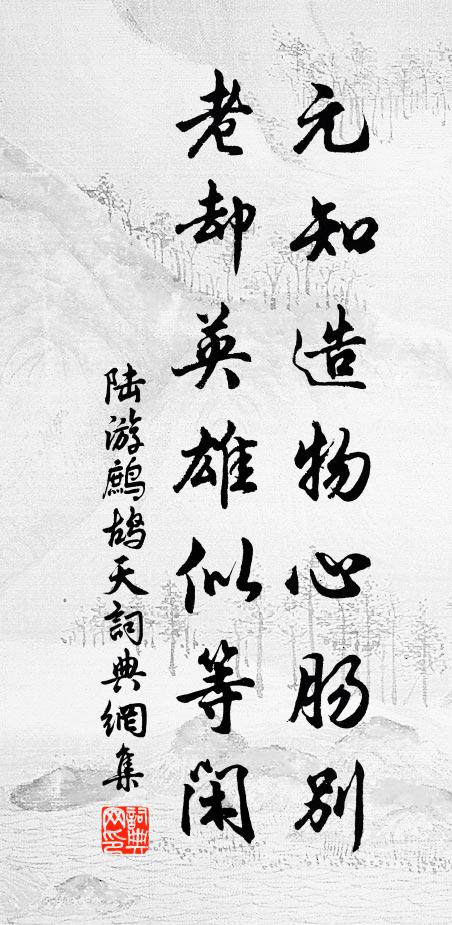 元知造物心肠别
老却英雄似等闲
陆游鹧鸪天词典網集
詞典網印